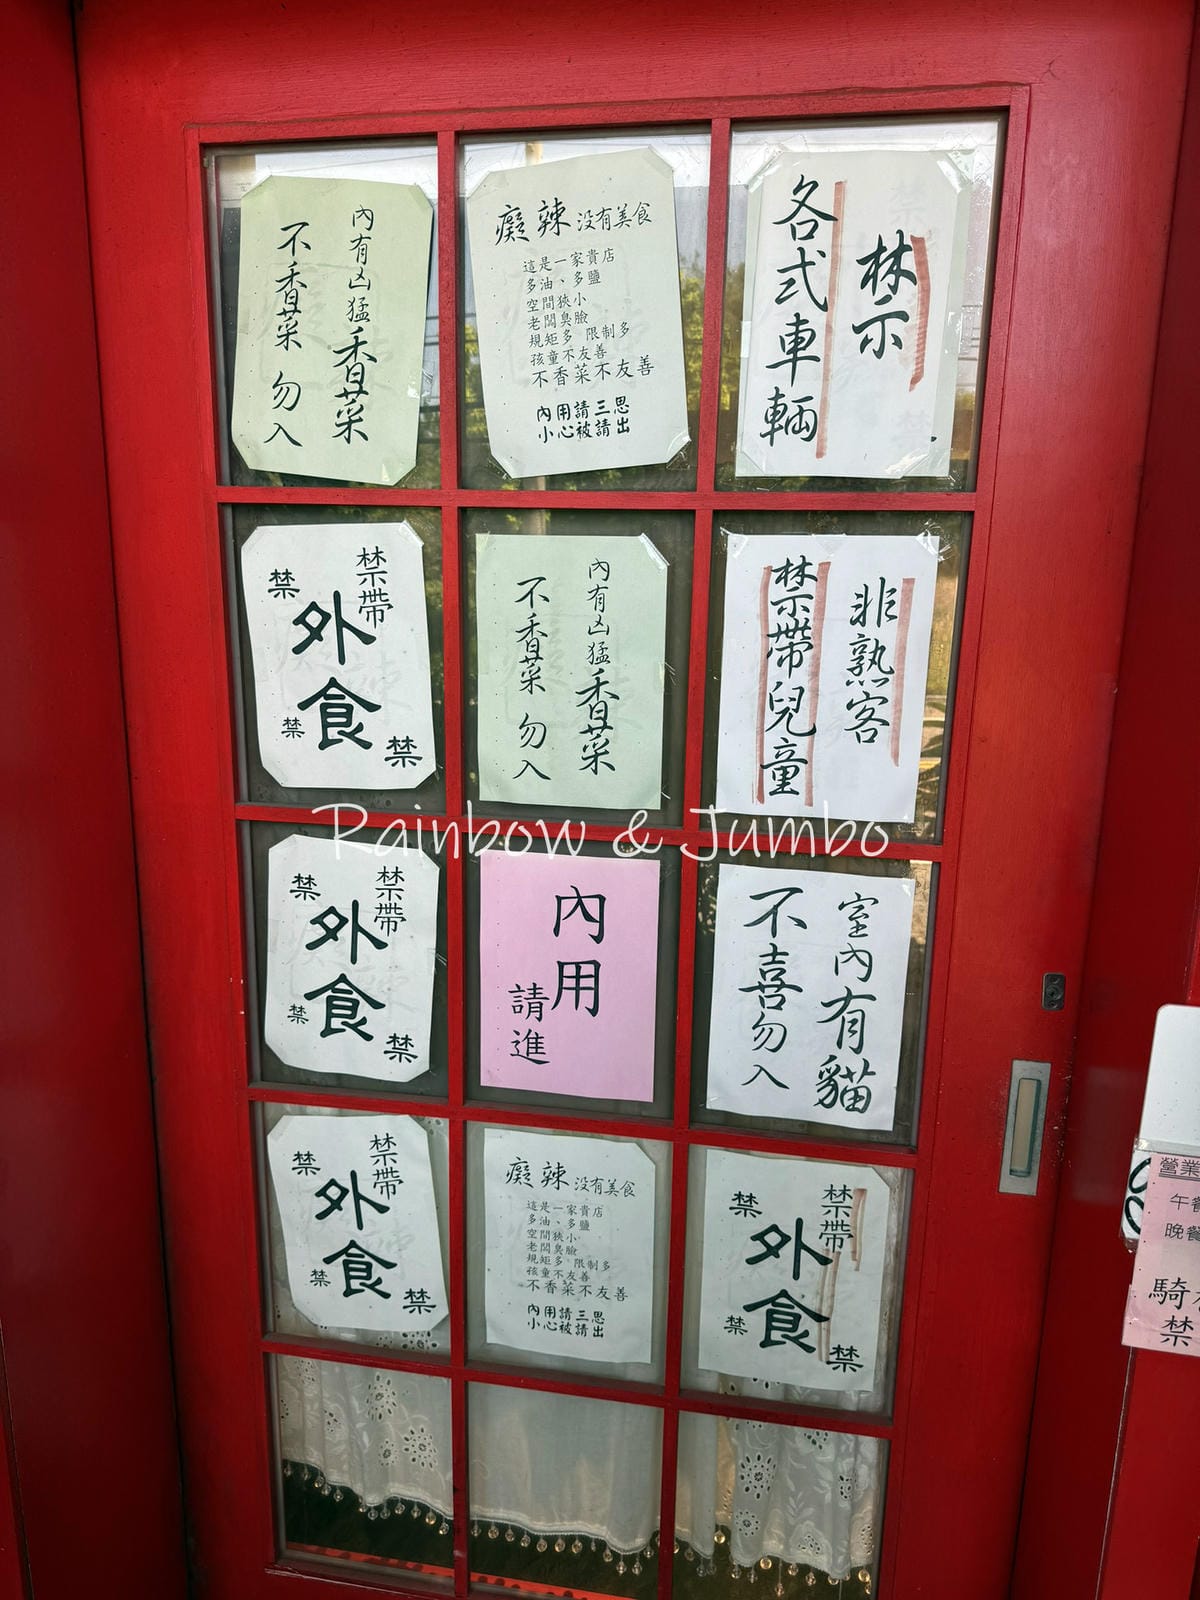 內有凶猛香菜
不香菜 勿入
癡辣 没有美食
這是一家貴店
多油、多鹽
空間狹小
老闆臭臉
規矩多 限制多
孩童不友善
不香菜不友善
內用請三思
小心被請出
禁
各式車輛
禁帶
外食
禁
禁
禁
內有凶猛香菜
不香菜 勿入
非熟客
禁帶兒童
Rainbow & Jumbo
禁帶
外食
禁
禁
禁
內用
請進
室內有貓
不喜勿入
禁帶
外食
禁
禁
禁
癡辣 没有美食
這是一家貴店
多油、多鹽
空間狹小
老闆臭臉
規矩多 限制多
孩童不友善
不香菜不友善
內用請三思
小心被請出
禁帶
外食
禁
禁
禁
營業
午餐
晚餐
騎
禁